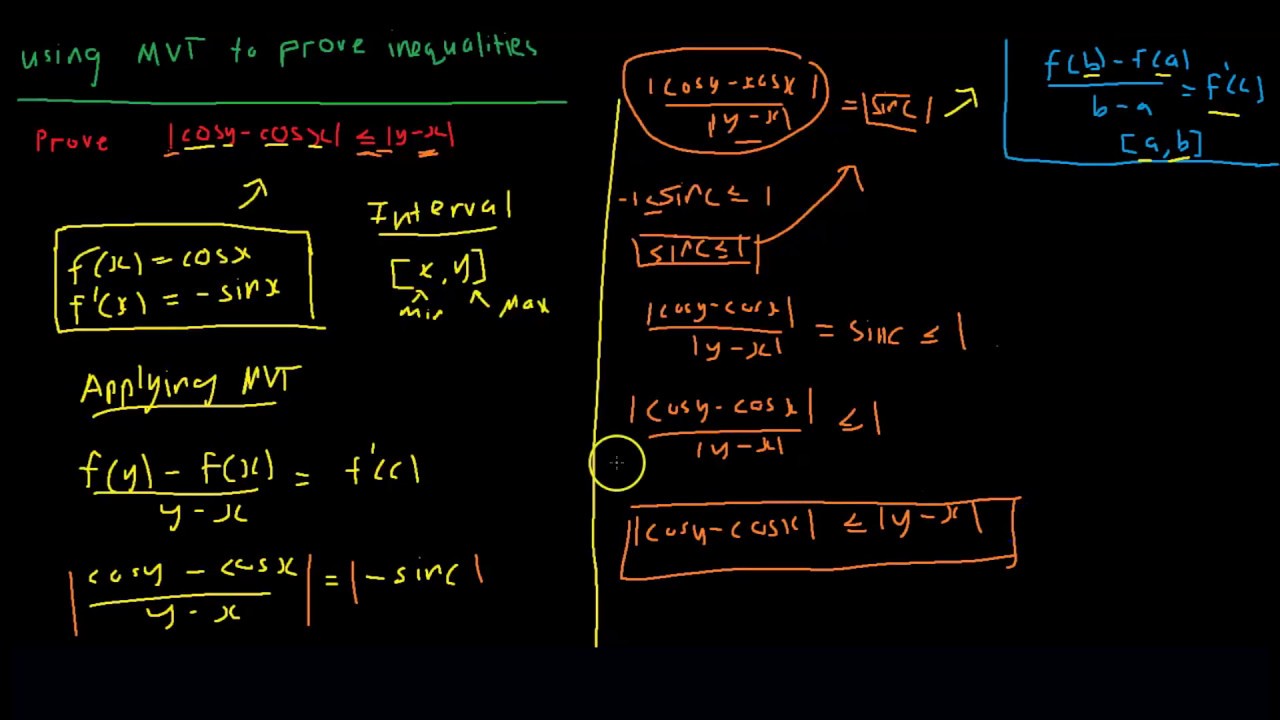 using MVT to prove inequalities
Prove |cosy - cosx| ≤ |y-x|
f(x) = cosx
f'(x) = - sinx
Interval
[x, y]
min max
Applying MVT
f(y) - f(x) / y - x = f'(c)
|cosy - cosx / y - x| = |- sinc|
|cosy - xosx| / |y - x| = |sinc|
-1 ≤ sinc ≤ 1
|sinc ≤ 1|
|cosy - cosx| / |y - x| = sinc ≤ 1
|cosy - cosx| / |y - x| ≤ 1
|cosy - cosx| ≤ |y - x|
f(b) - f(a) / b - a = f'(c)
[a, b]